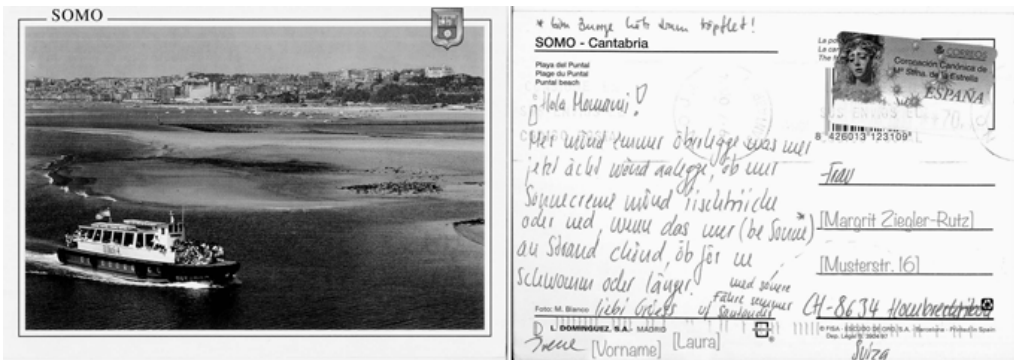 SOMO
* bim Burge hets dänn tröpflet!
SOMO - Cantabria
Playa del Puntal
Plage du Puntal
Puntal beach
Hola Momomi!
Mer münd immer überlegge was mer
jetzt ächt wönd aalegge, ob mer
Sonnecreme münd iischtriiche
oder ned, wenn das mer (be Sonne)*
an Strand chönd, öb för en
Schwumm oder länger.
med sövere
Fähre semmer
liebi Grüess uf Santander
Foto: M. Blanco
L. DOMINGUEZ, S.A. - MADRID
Irene [Vorname] [Laura]
CORREOS
Coronación Canónica de
Mª Stma. de la Estrella
ESPAÑA
8 426013 123109
Frau
[Margrit Ziegler-Rutz]
[Musterstr. 16]
CH-8634 Hombrechtikon
© FISA - ESCUDO DE ORO, S.A. - Barcelona - Printed in Spain
Suiza